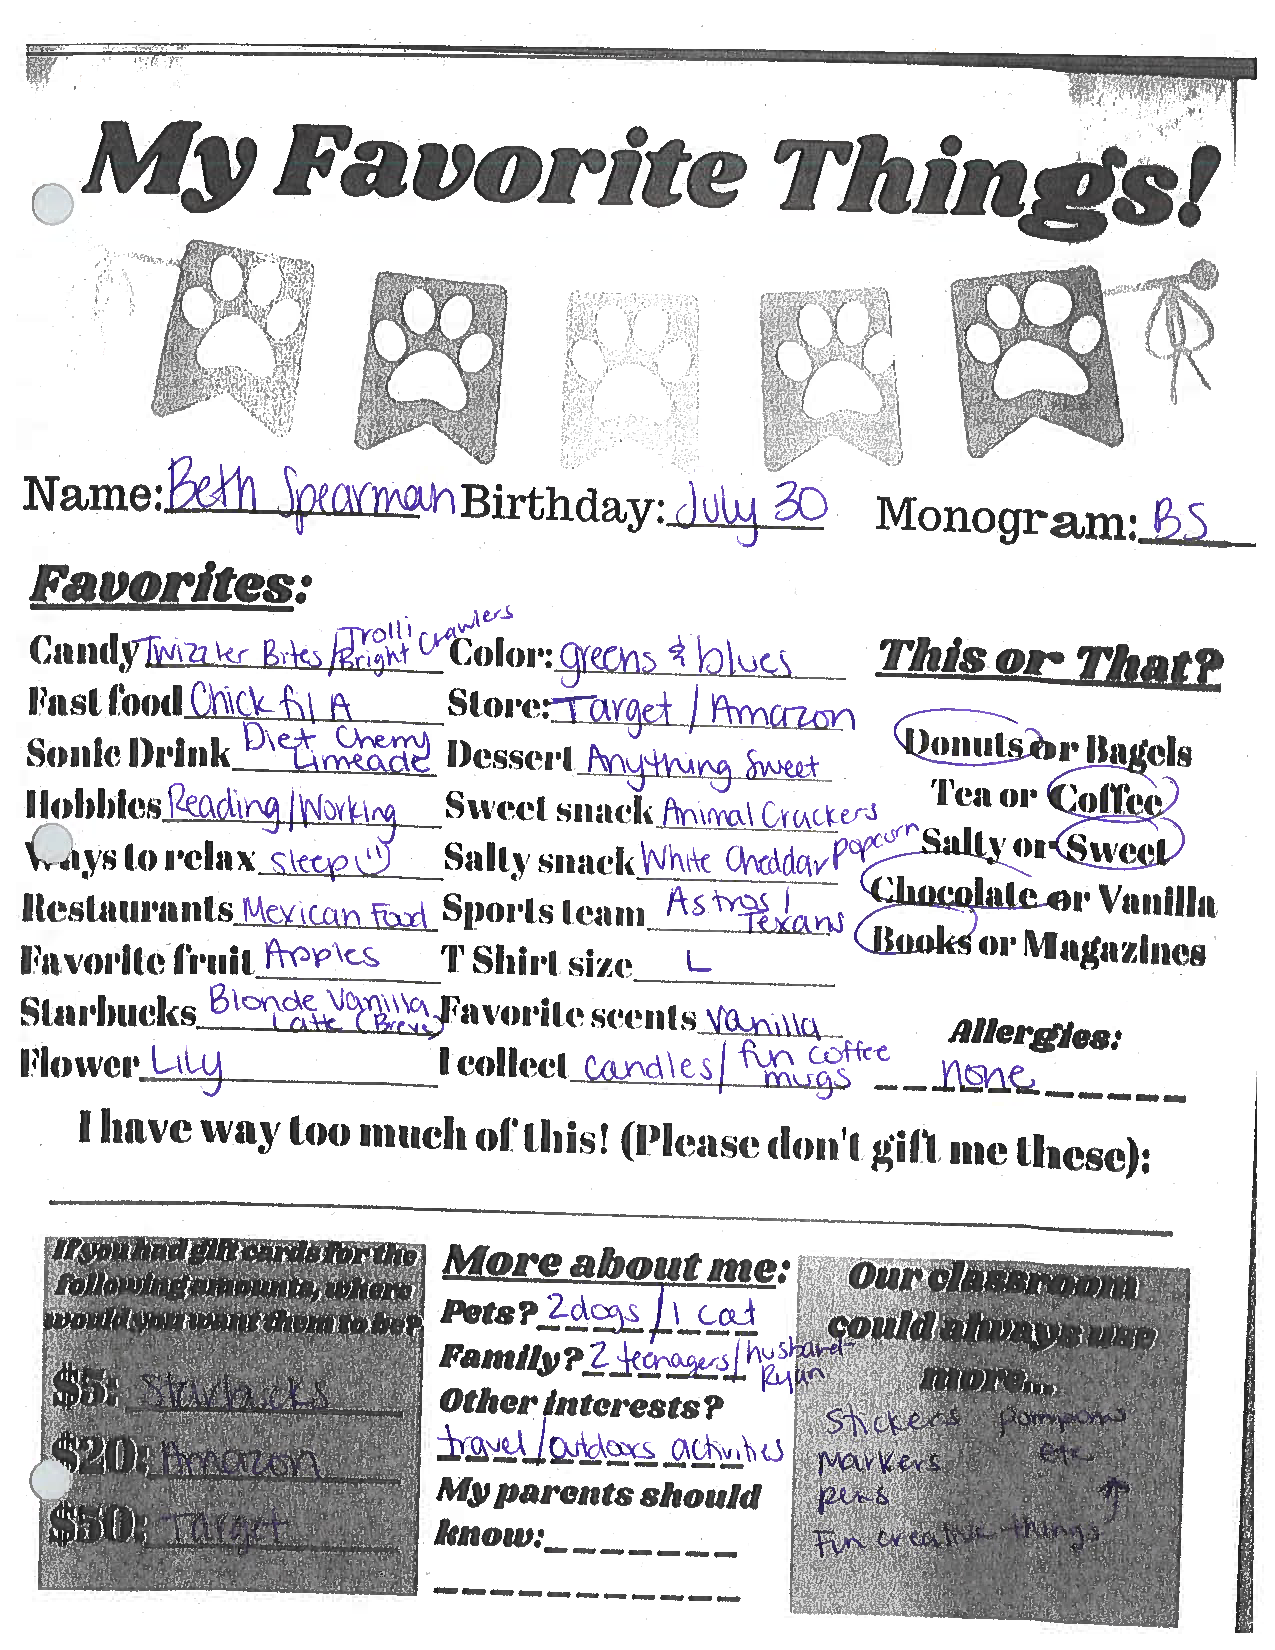 My Favorite Things!
Name: Beth Spearman Birthday: July 30 Monogram: BS
Favorites:
Candy Twizzler Bites / Trolli Bright Crawlers Color: greens & blues
This or That?
Fast food Chick fil A Store: Target / Amazon
Donuts or Bagels
Sonic Drink Diet Cherry Limeade Dessert Anything Sweet
Tea or Coffee
Hobbies Reading/Working Sweet snack Animal Crackers
Salty or Sweet
Ways to relax Sleep Salty snack White Cheddar Popcorn
Chocolate or Vanilla
Restaurants Mexican Food Sports team Astros / Texans
Books or Magazines
Favorite fruit Apples T Shirt size L
Starbucks Blonde Vanilla Latte (Breve) Favorite scents Vanilla
Allergies:
Flower Lily I collect candles / fun coffee mugs none
I have way too much of this! (Please don't gift me these):
If you had gift cards for the
following amounts, where
would you want them to be?
$5: Starbucks
$20: Amazon
$50: Target
More about me:
Pets? 2 dogs / 1 cat
Family? 2 teenagers / husband-Ryan
Other interests?
travel / outdoors activities
My parents should
know:
Our classroom
could always use
more...
Stickers pompoms
Markers etc
pens
Fun creative things